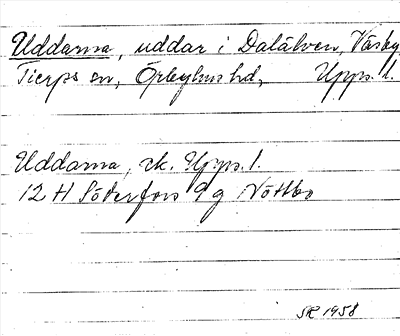 Uddarna, uddar i Dalälven, Väsby,
Tierps sn, Örbyhus hd, Upps. l.
Uddarna, ek. Upps. l.
12 H Söderfors 9 g Nöttbo
SR 1958